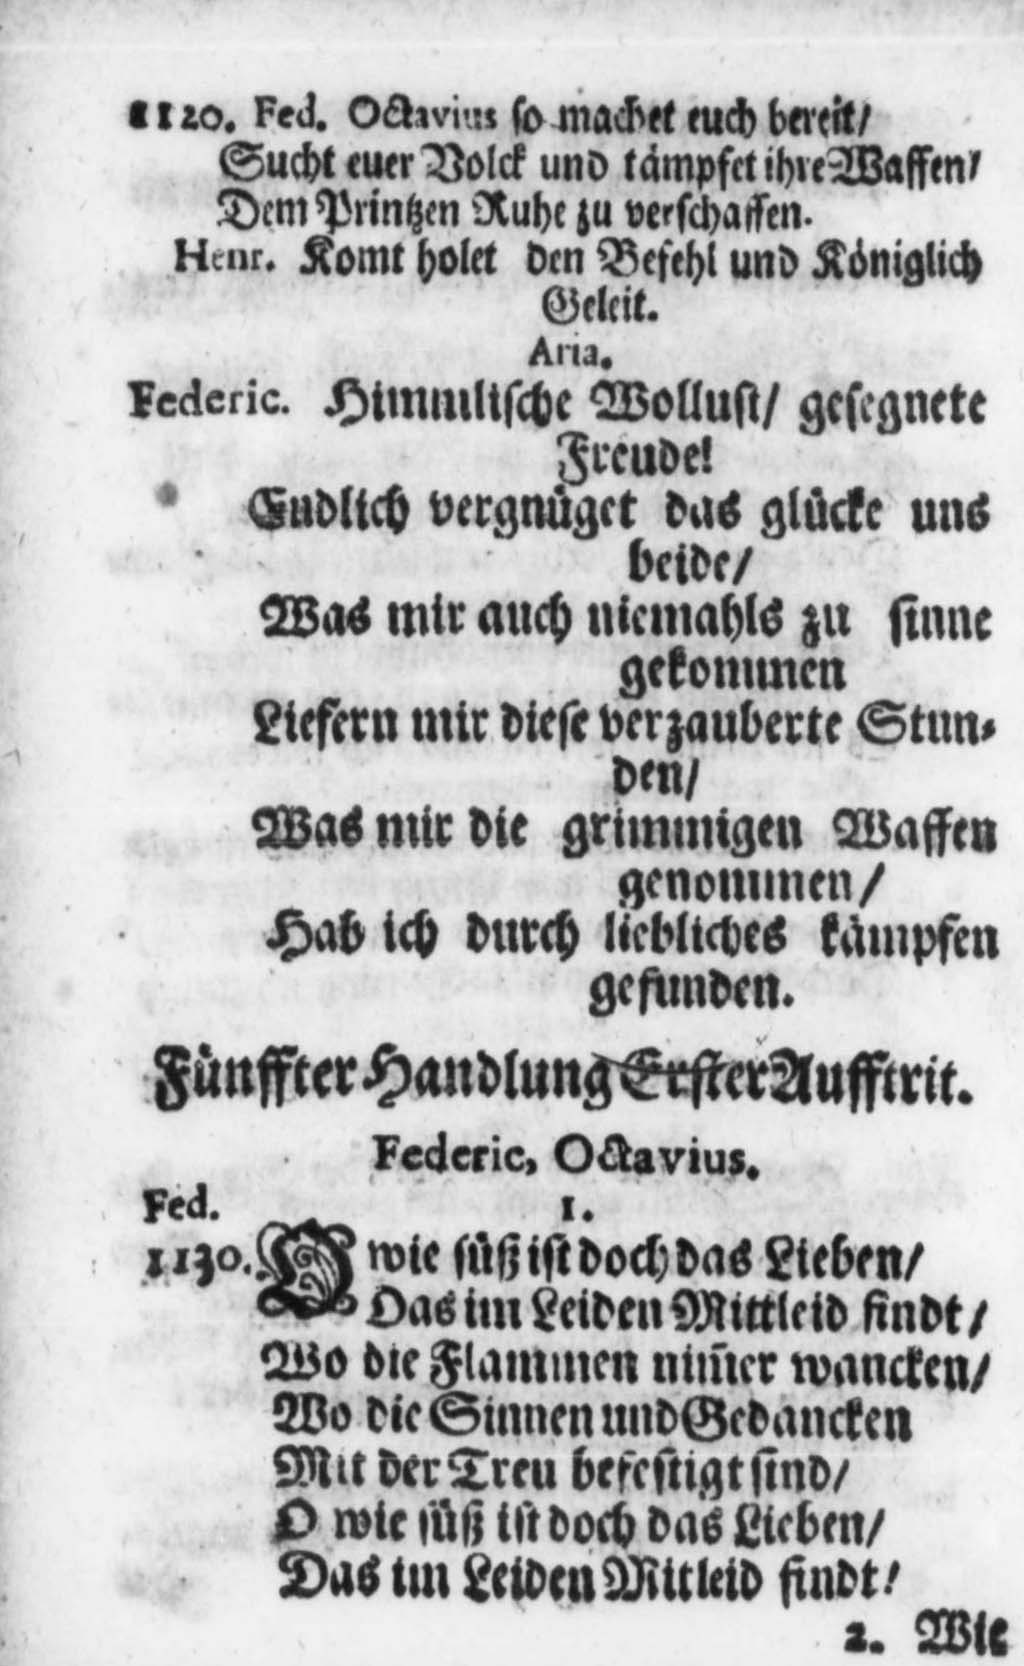 1120. Fed. Octavius so machet euch bereit/
Sucht euer Volck und tämpfet ihre Waffen/
Dem Printzen Ruhe zu verschaffen.
Henr. Komt holet den Befehl und Königlich
Geleit.
Aria.
Federic. Himmlische Wollust/ gesegnete
Freude!
Endlich vergnüget das glücke uns
beide/
Was mir auch niemahls zu sinne
gekommen
Liefern mir diese verzauberte Stun-
den/
Was mir die grimmigen Waffen
genommen/
Hab ich durch liebliches kämpfen
gefunden.
Fünffter Handlung Erster Aufftrit.
Federic, Octavius.
Fed. 1.
1130. O wie süß ist doch das Lieben/
Das im Leiden Mittleid findt/
Wo die Flammen nim̃er wancken/
Wo die Sinnen und Gedancken
Mit der Treu befestigt sind/
O wie süß ist doch das Lieben/
Das im Leiden Mitleid findt!
2. Wie